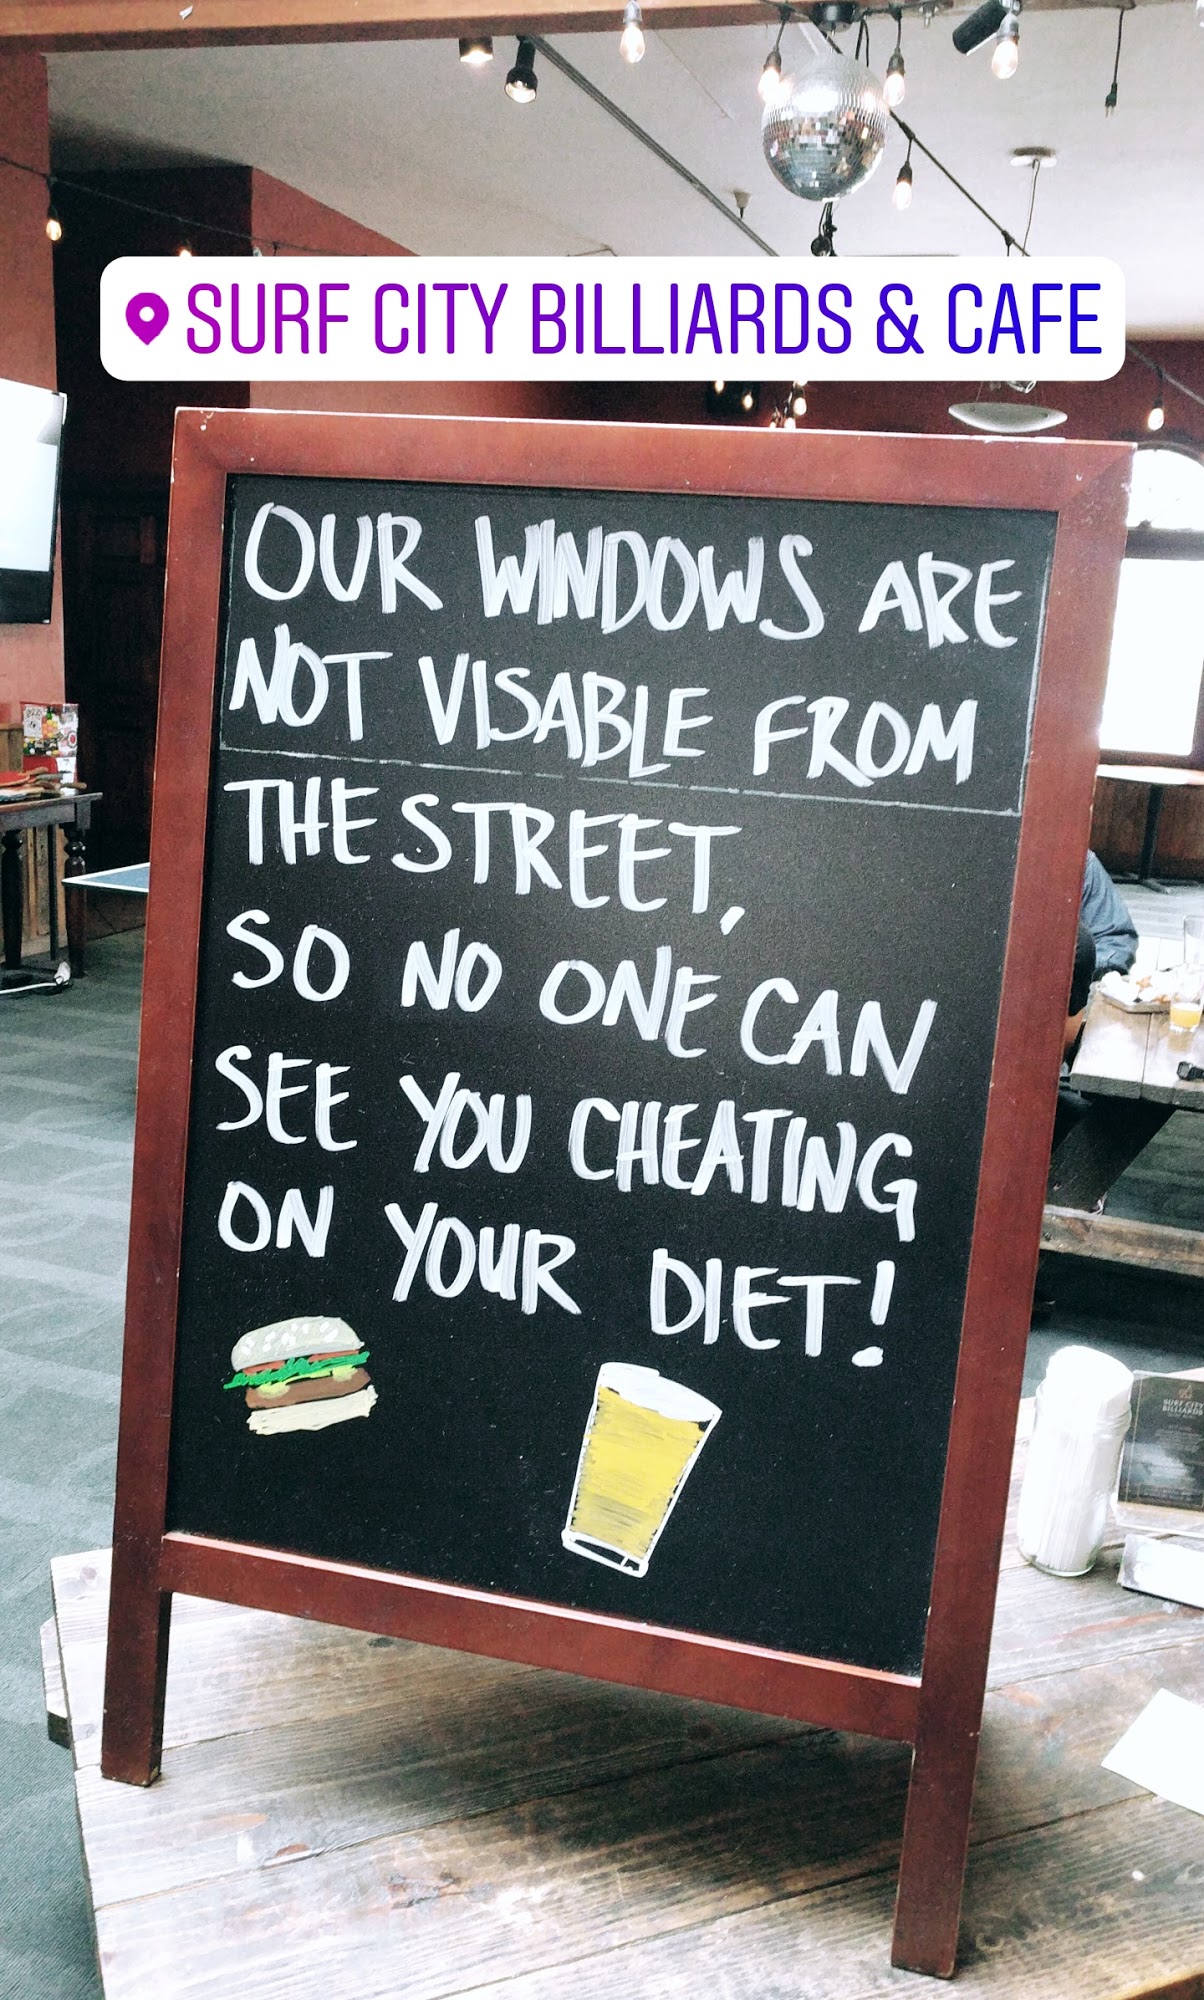 SURF CITY BILLIARDS & CAFE
OUR WINDOWS ARE
NOT VISABLE FROM
THE STREET,
SO NO ONE CAN
SEE YOU CHEATING
ON YOUR DIET!
SURF CITY
BILLIARDS